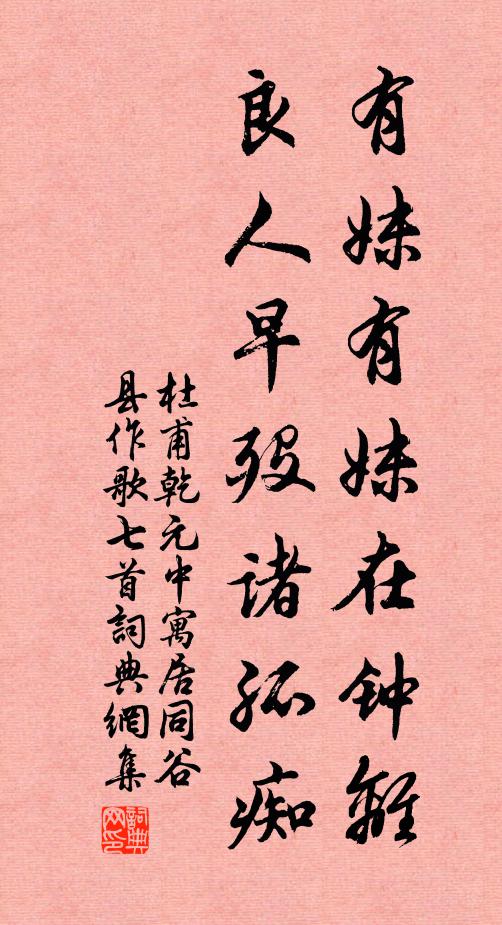 有妹有妹在钟離
良人早殁诸孤痴
杜甫乾元中寓居同谷
县作歌七首詞典網集
詞典网印